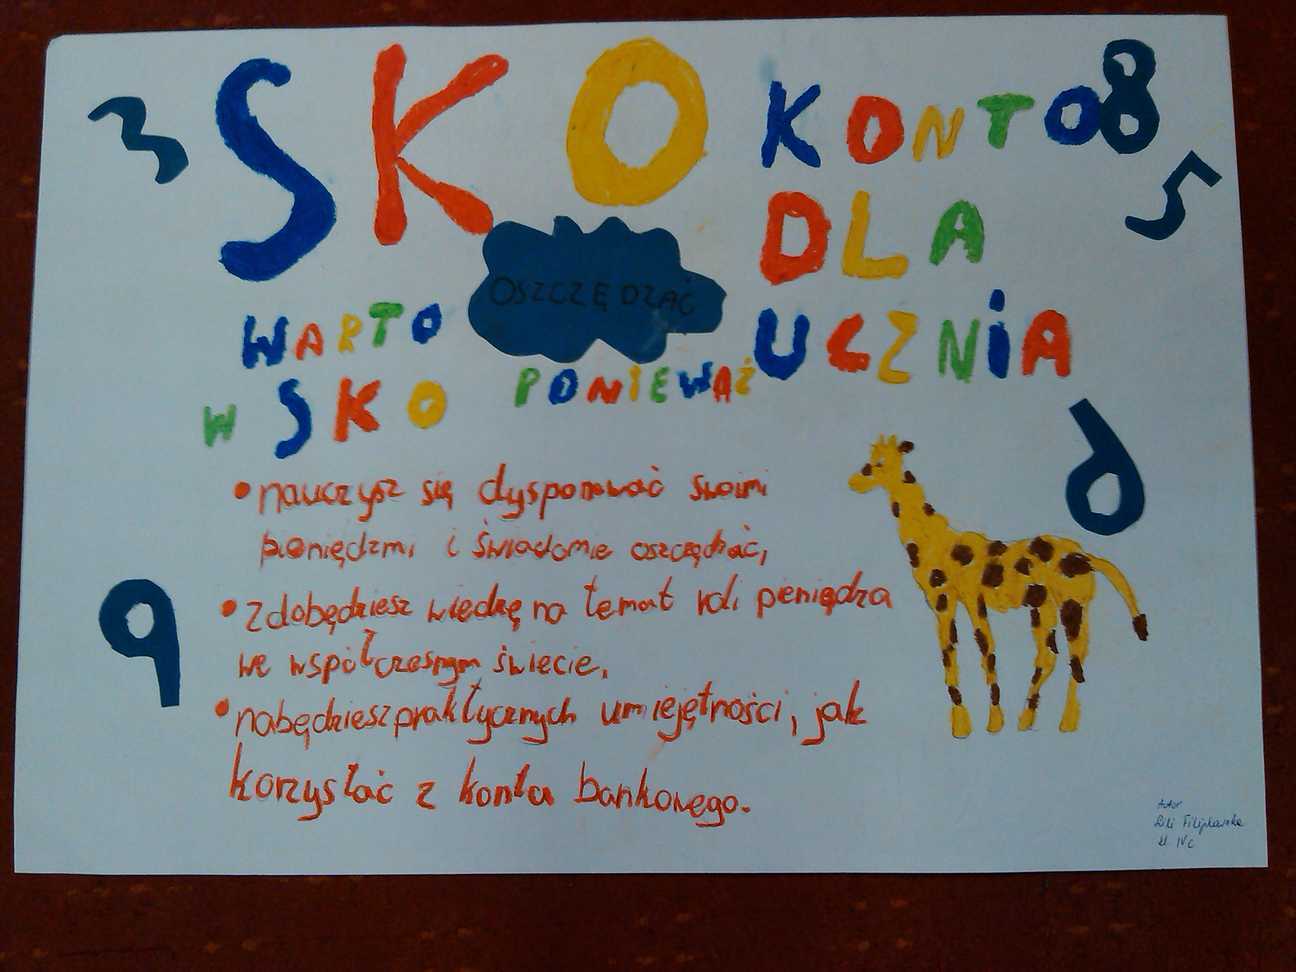 SKO
KONTO
DLA
UCZNIA
3
8
5
WARTO OSZCZĘDZAĆ
W SKO PONIEWAŻ
• nauczysz się dysponować swoimi
pieniędzmi i świadomie oszczędzać,
• zdobędziesz wiedzę na temat roli pieniądza
we współczesnym świecie,
• nabędziesz praktycznych umiejętności, jak
korzystać z konta bankowego.
6
9
Autor
kl. IVc